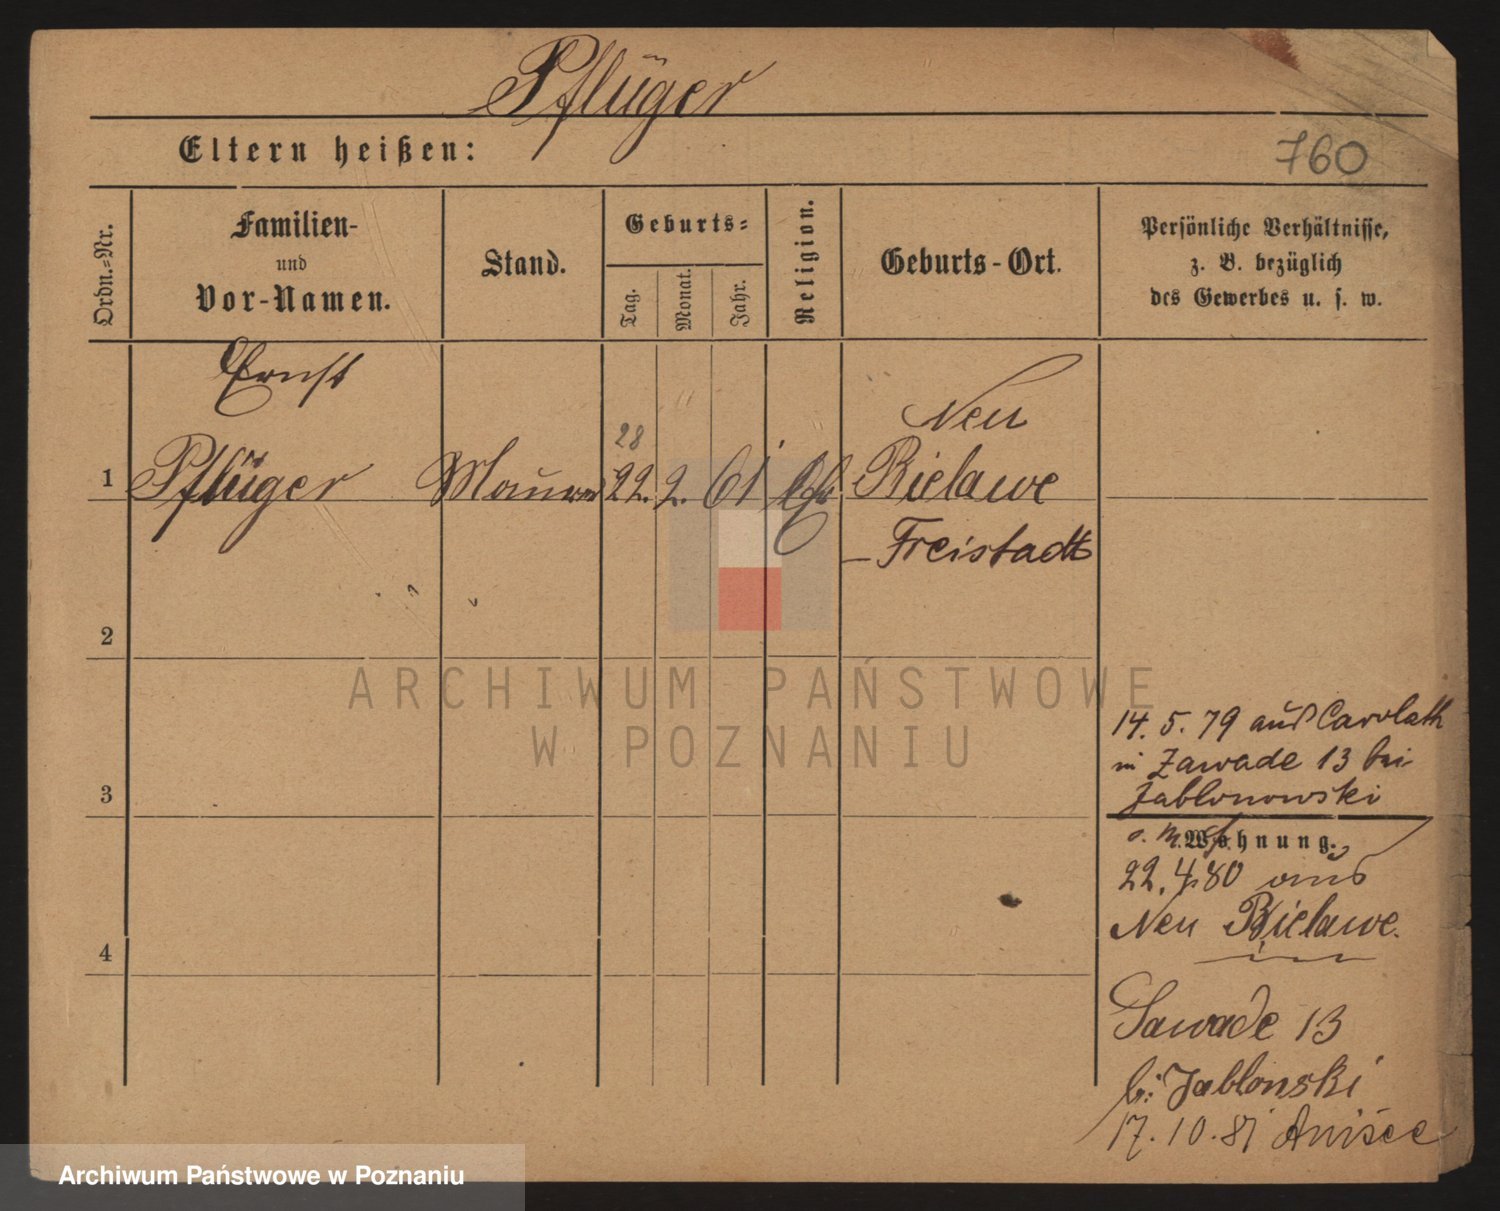 Pflüger
Eltern heißen:
760
Ordn.=Nr.
Familien-
und
Vor-Namen.
Stand.
Geburts=
Tag.
Monat.
Jahr.
Religion.
Geburts-Ort.
Persönliche Verhältnisse,
z. B. bezüglich
des Gewerbes u. s. w.
Ernst
28
Neu
1 Pflüger Maurer 22. 2. 61 Bielawe
- Freistadt
2
ARCHIWUM PAŃSTWOWE
W POZNANIU
14. 5. 79 aus Carolath
in Zawade 13 bei
Jablonowski
3
Wohnung.
22. 4. 80 aus
Neu Bielawe.
4
in
Sawade 13
bei Jablonski
17. 10. 81
Archiwum Państwowe w Poznaniu